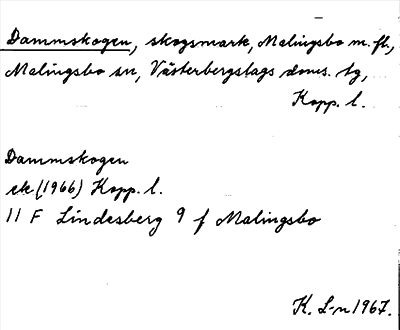 Dammskogen, skogsmark, Malingsbo m. fl.,
Malingsbo sn, Västerbergslags doms. tg,
Kopp. l.
Dammskogen
ek (1966) Kopp. l.
11 F Lindesberg 9 f Malingsbo
K. L-n 1967.